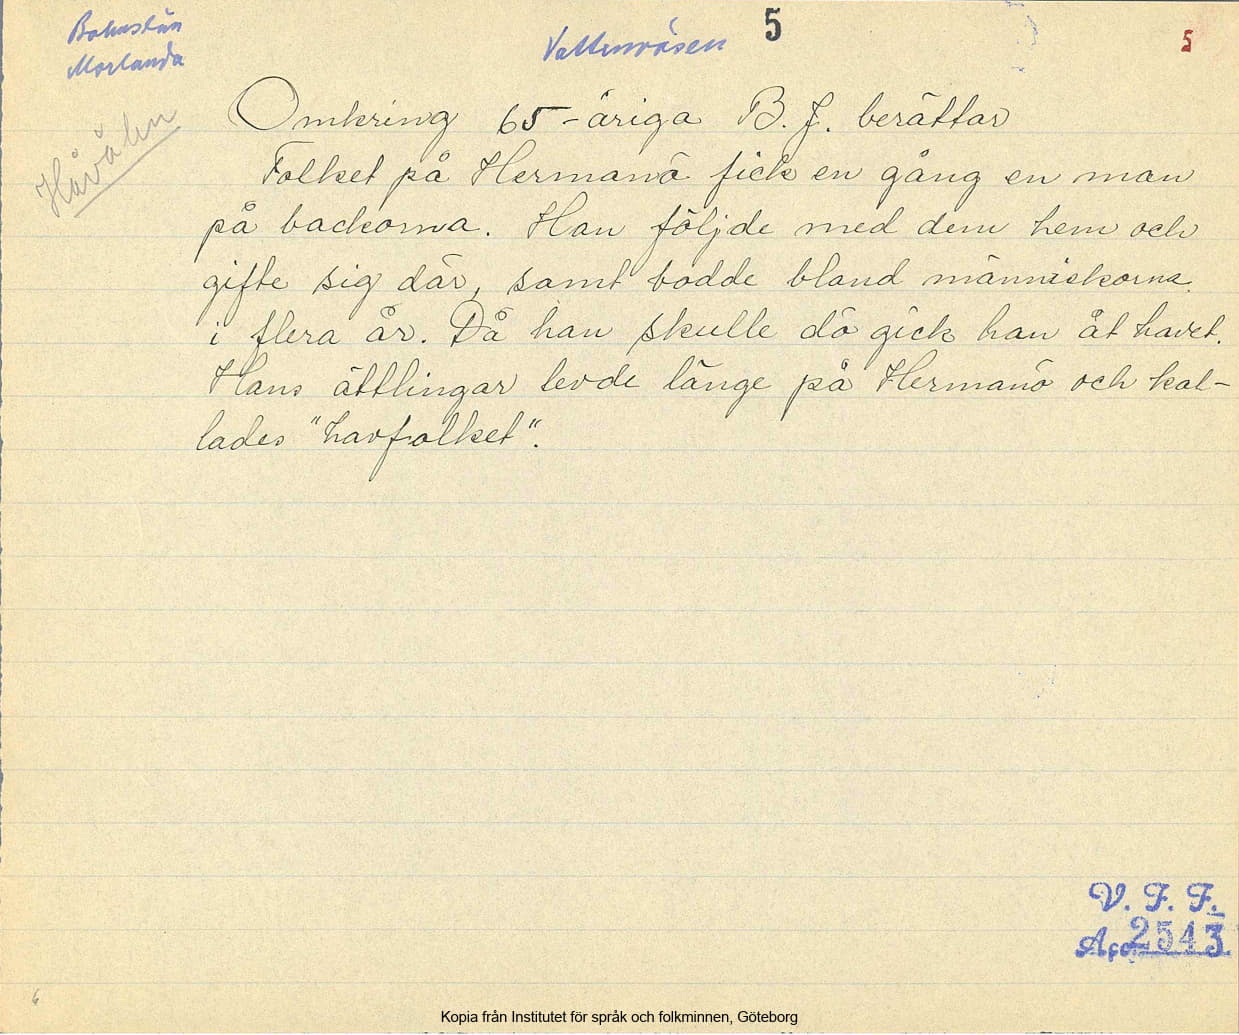 Bohuslän
Morlanda
Vattenväsen
5
5
Omkring 65-åriga B. J. berättar
Folket på Hermanö fick en gång en man
på backorna. Han följde med dem hem och
gifte sig där, samt bodde bland människorna
i flera år. Då han skulle dö gick han åt havet.
Hans ättlingar levde länge på Hermanö och kal-
lades "havfolket".
V. F. F.
2543
6
Kopia från Institutet för språk och folkminnen, Göteborg